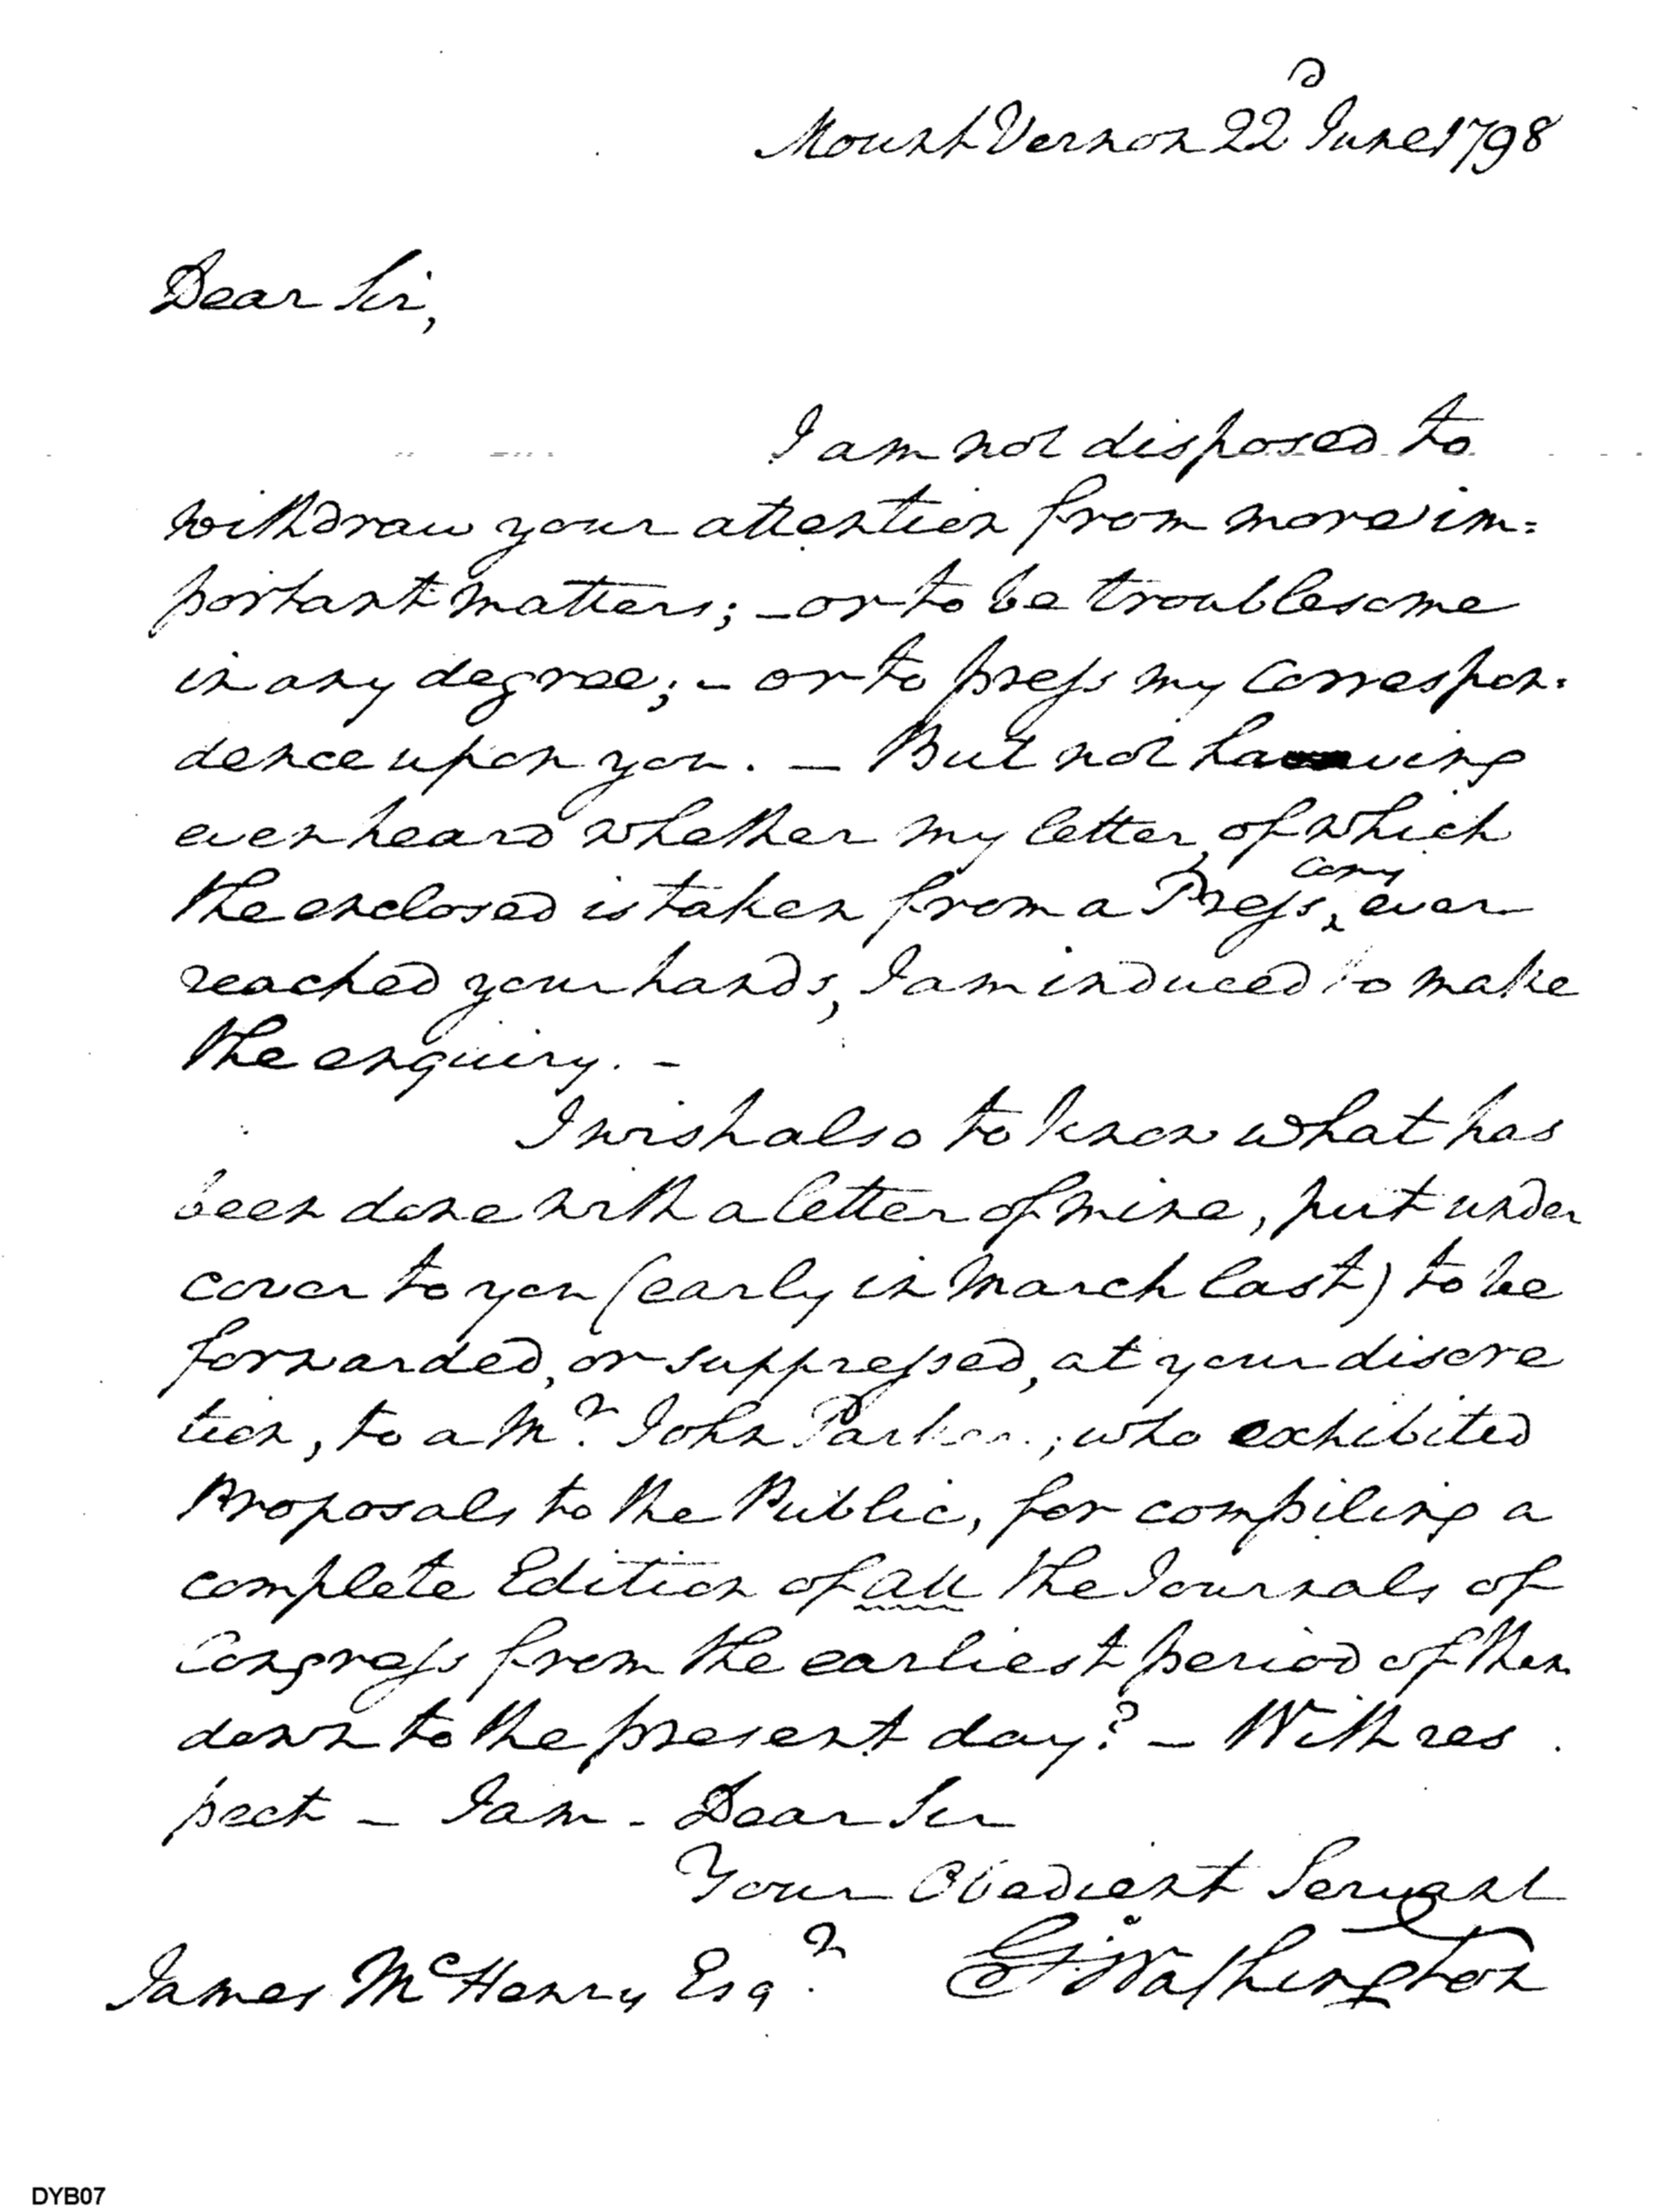 Mount Vernon 22d June 1798
Dear Sir,
I am not disposed to
withdraw your attention from more im=
portant matters; – or to be troublesome
in any degree; – or to press my correspon=
dence upon you. – But not having
even heard whether my letter, of which
the enclosed is taken from a Press copy, ever
reached your hands, I am induced to make
the enquiry. –
I wish also to know what has
been done with a letter of mine, put under
cover to you (early in March last) to be
forwarded, or suppressed, at your discre
tion, to a Mr. John Parker; who exhibited
Proposals to the Public, for compiling a
complete Edition of all the Journals of
Congress from the earliest period of them
down to the present day? – With res
pect – I am – Dear Sir
Your Obedient Servant
James McHenry Esqr. Go: Washington
DYB07